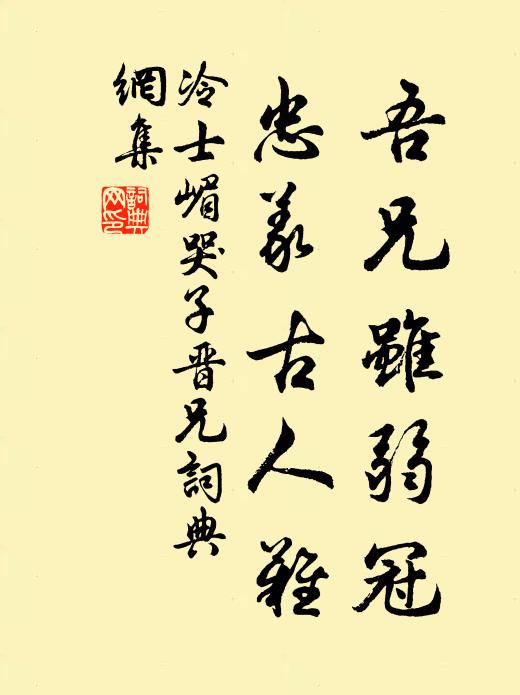 吾兄雖弱冠
忠義古人難
冷士嵋哭子晋兄詞典
網集
詞典
网印